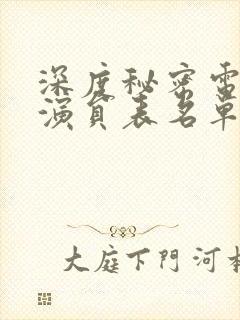 深度秘密電
演員表名單
大庭下門河